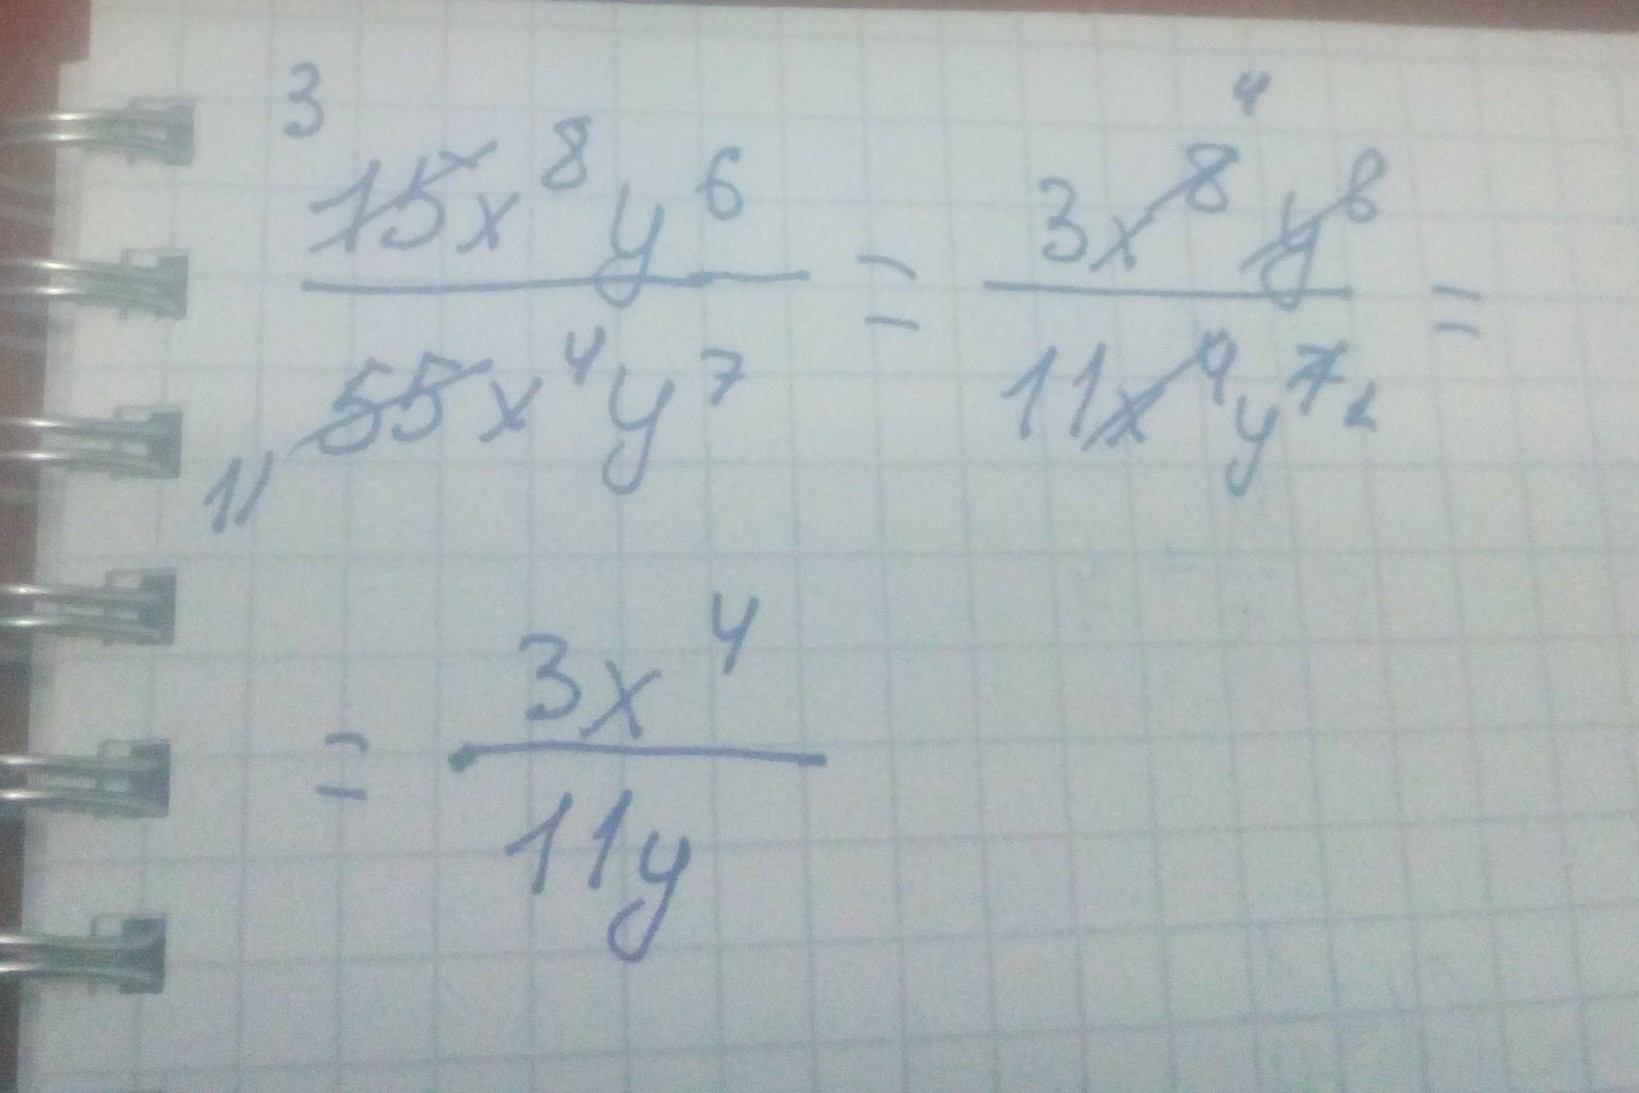 3 4
15x⁸y⁶ / 55x⁴y⁷ = 3x⁸y⁶ / 11x⁴y⁷ =
11 1
= 3x⁴ / 11y